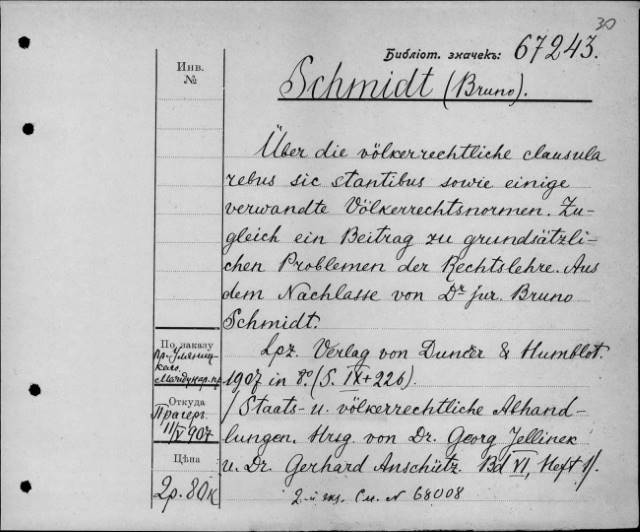 30
Библіот. значекъ: 67243.
Инв. №
Schmidt (Bruno).
Über die völkerrechtliche clausula
rebus sic stantibus sowie einige
verwandte Völkerrechtsnormen. Zu-
gleich ein Beitrag zu grundsätzli-
chen Problemen der Rechtslehre. Aus
dem Nachlasse von Dr jur. Bruno
Schmidt.
Lpz. Verlag von Duncker & Humblot.
1907 in 8º. (S. IX+226).
/Staats- u. völkerrechtliche Abhand-
lungen. Hrsg. von Dr. Georg Jellinek
u. Dr. Gerhard Anschütz. Bd VI, Heft 1/.
2-й экз. См. N 68008
По заказу
Междунар. пр.
Откуда
Прагеръ
11/V 907
Цѣна
2р. 80к